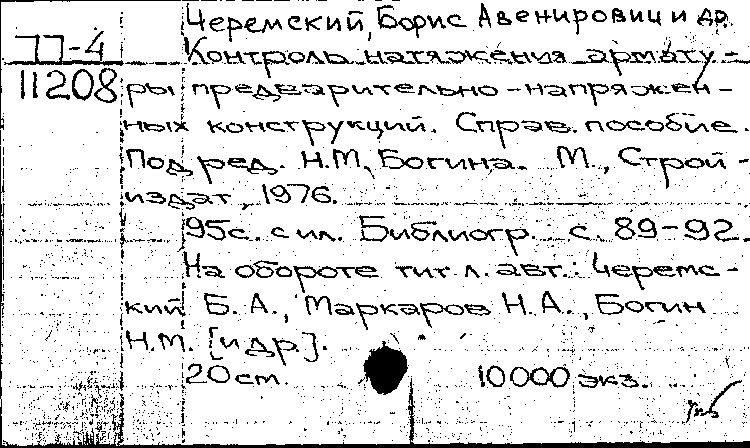 Черемский, Борис Авенирович и др.
77-4 Контроль натяжения армату-
11208 ры предварительно-напряжен-
ных конструкций. Справ. пособие.
Под ред. Н.М. Богина. М., Строй-
издат, 1976.
95с. с ил. Библиогр. с. 89-92.
На обороте тит. л. авт.: Черемс-
кий Б. А., Маркаров Н. А., Богин
Н.М. [и др].
20 см. 10000 экз.